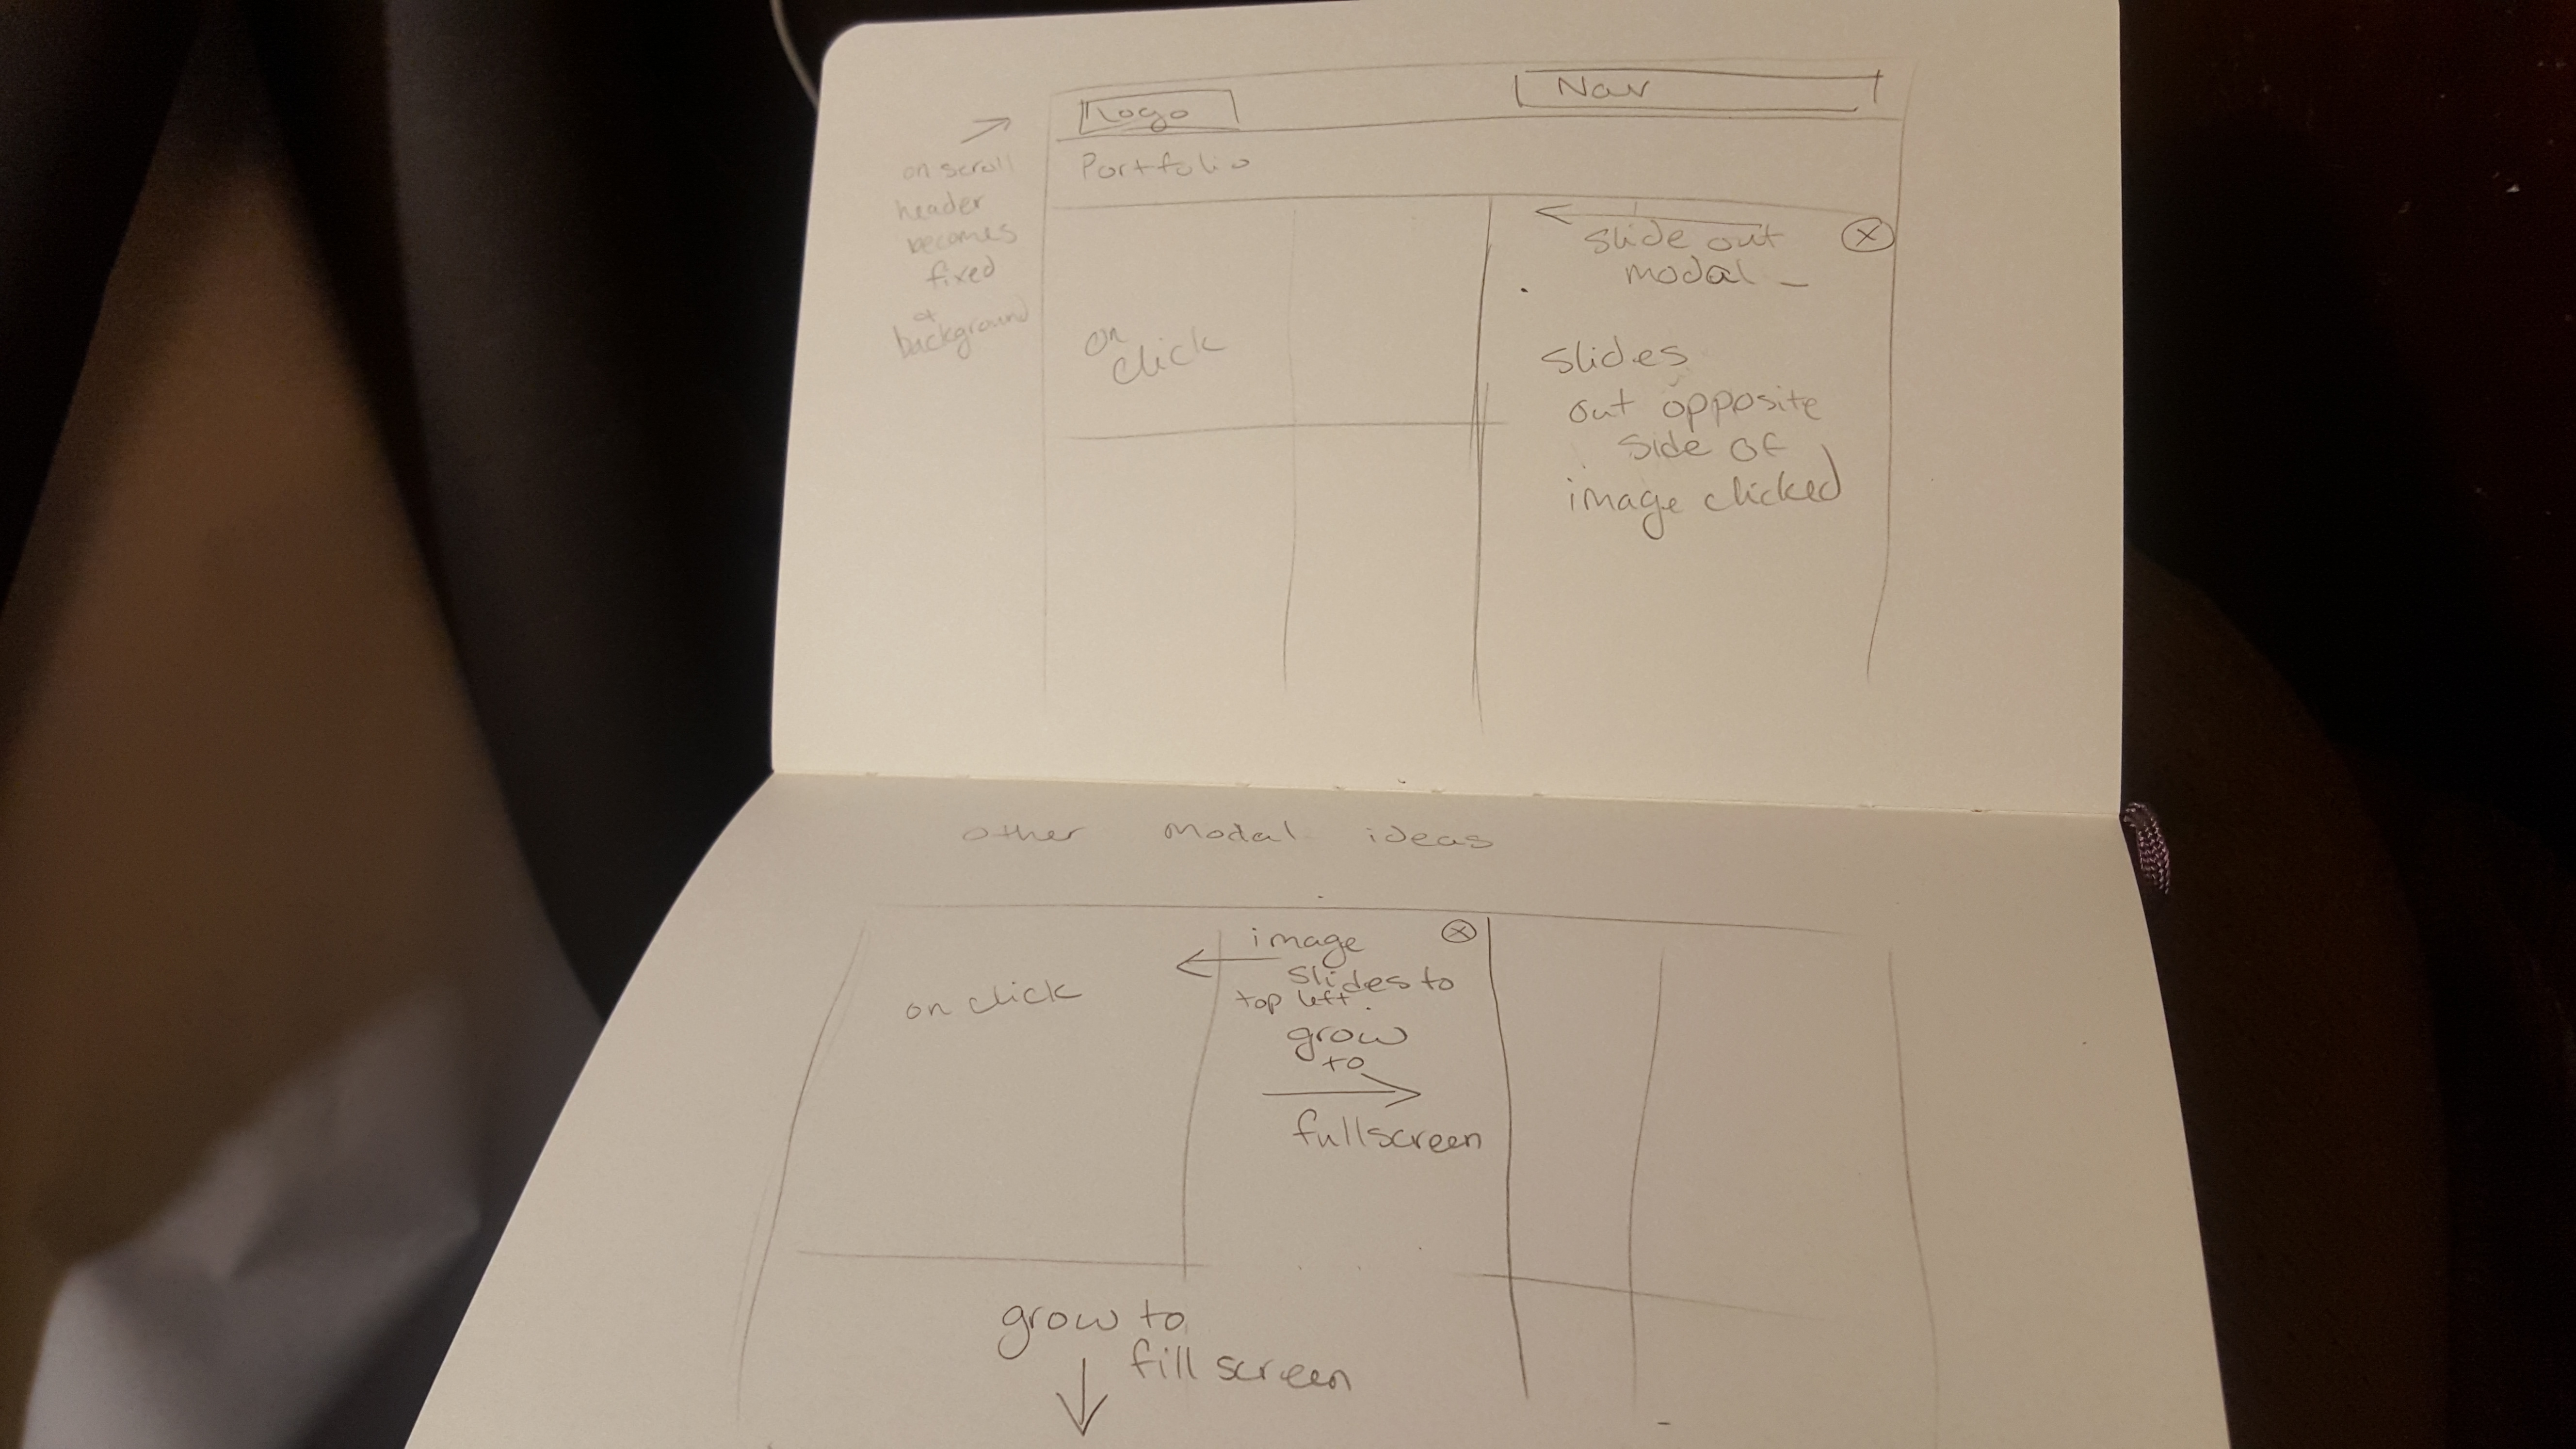 Logo
Nav
Portfolio
on scroll
header
becomes
fixed
background
on
click
slide out
modal
X
slides
out opposite
side of
image clicked
other modal ideas
on click
image
X
slides to
top left
grow
to
fullscreen
grow to
fill screen